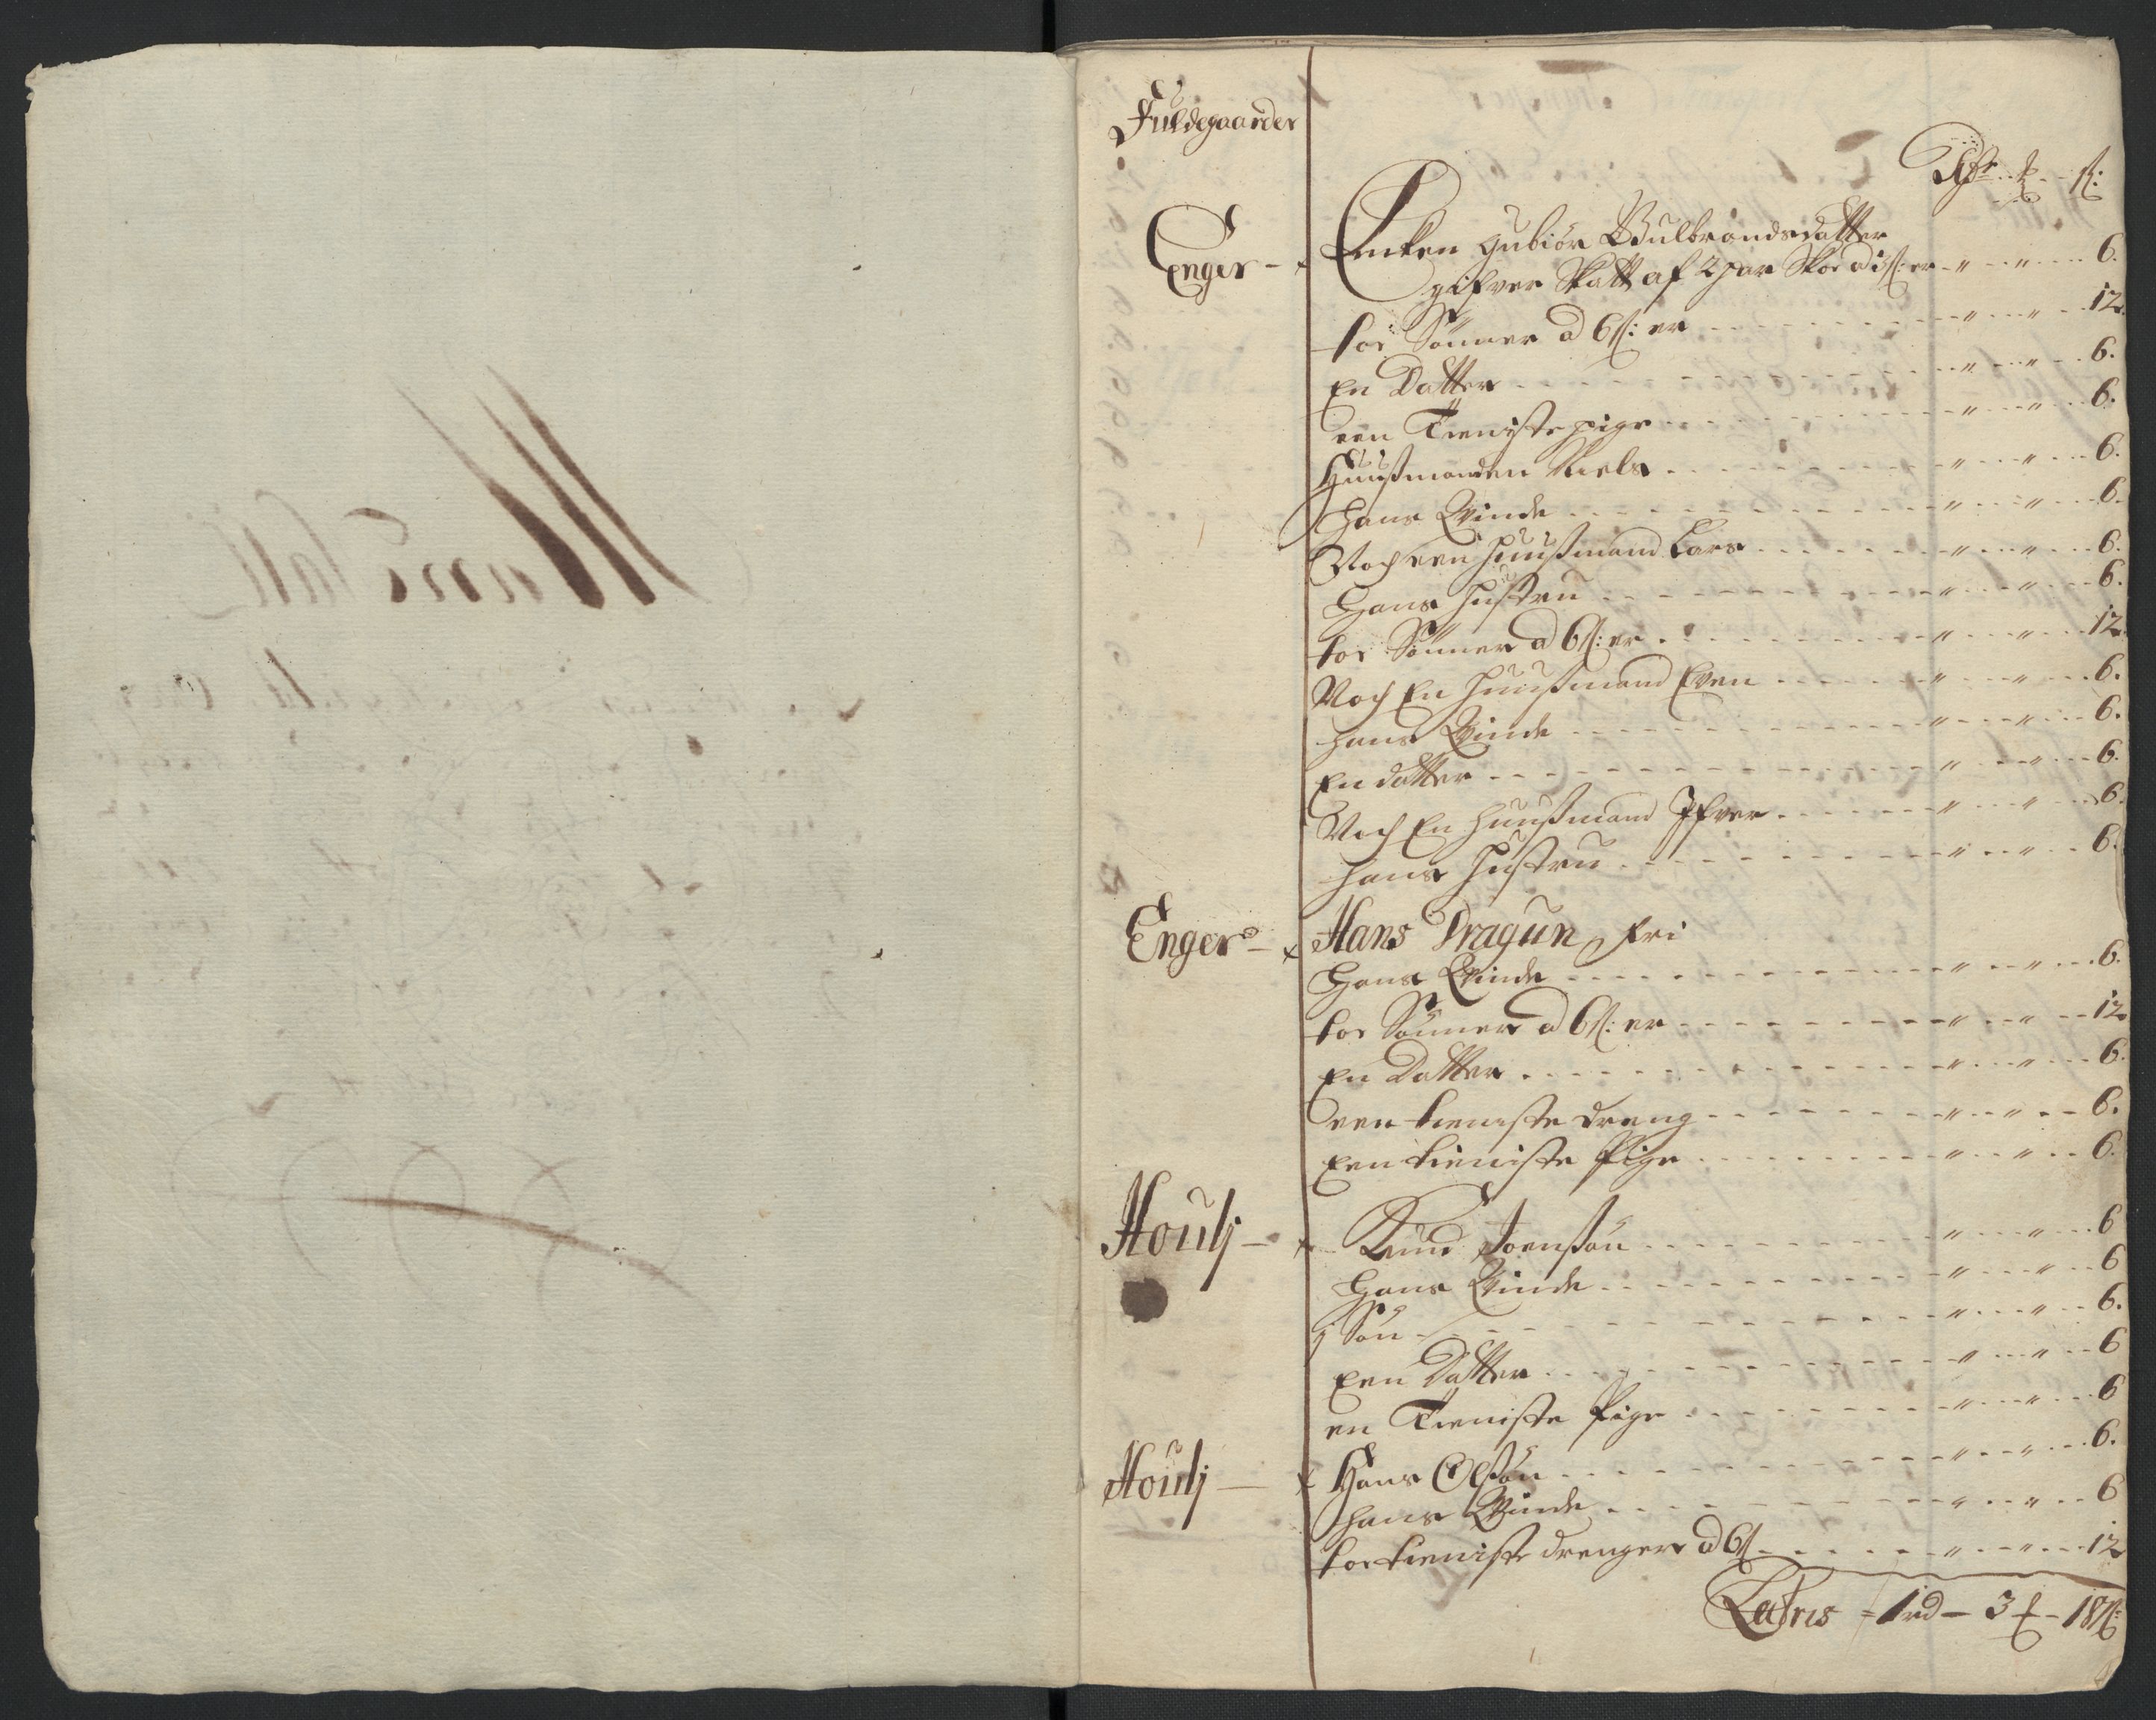 Fuldegaarder
Rdr ß:
Enger - Enken Gubiör Gulbrandsdatter
gifver Skatt af 2 par Skoe a 3 ß: er - " - " - 6.
toe Sönner a 6 ß: er - " - " - 12
En Datter - " - " - 6.
een Tieniste pige - " - " - 6.
Huusmanden Niels - " - " - 6.
Hans Qvinde - " - " - 6.
Noch een huusmand Lars - " - " - 6.
Hans hustru - " - " - 6.
toe Sönner a 6 ß: er - " - " - 12.
Noch En huusmand Even - " - " - 6.
hans Qvinde - " - " - 6.
En datter - " - " - 6.
Noch En huusmand Ifver - " - " - 6.
hans hustru - " - " - 6.
Enger - Hans Dragun fri
Hans Qvinde - " - " - 6.
toe Sönner a 6 ß: er - " - " - 12
En Datter - " - " - 6.
een tieniste dreng - " - " - 6.
Een tieniste Pige - " - " - 6.
Houlj - Knud Joensön - " - " - 6
Hans Qvinde - " - " - 6
j Sön - " - " - 6.
Een Datter - " - " - 6
en Tieniste Pige - " - " - 6
Houlj - Hans Olsön - " - " - 6.
hans Qvinde - " - " - 6
toe tieniste drenger a 6 ß - " - " - 12
Latris - 1 rd - 3 - 18 ß: